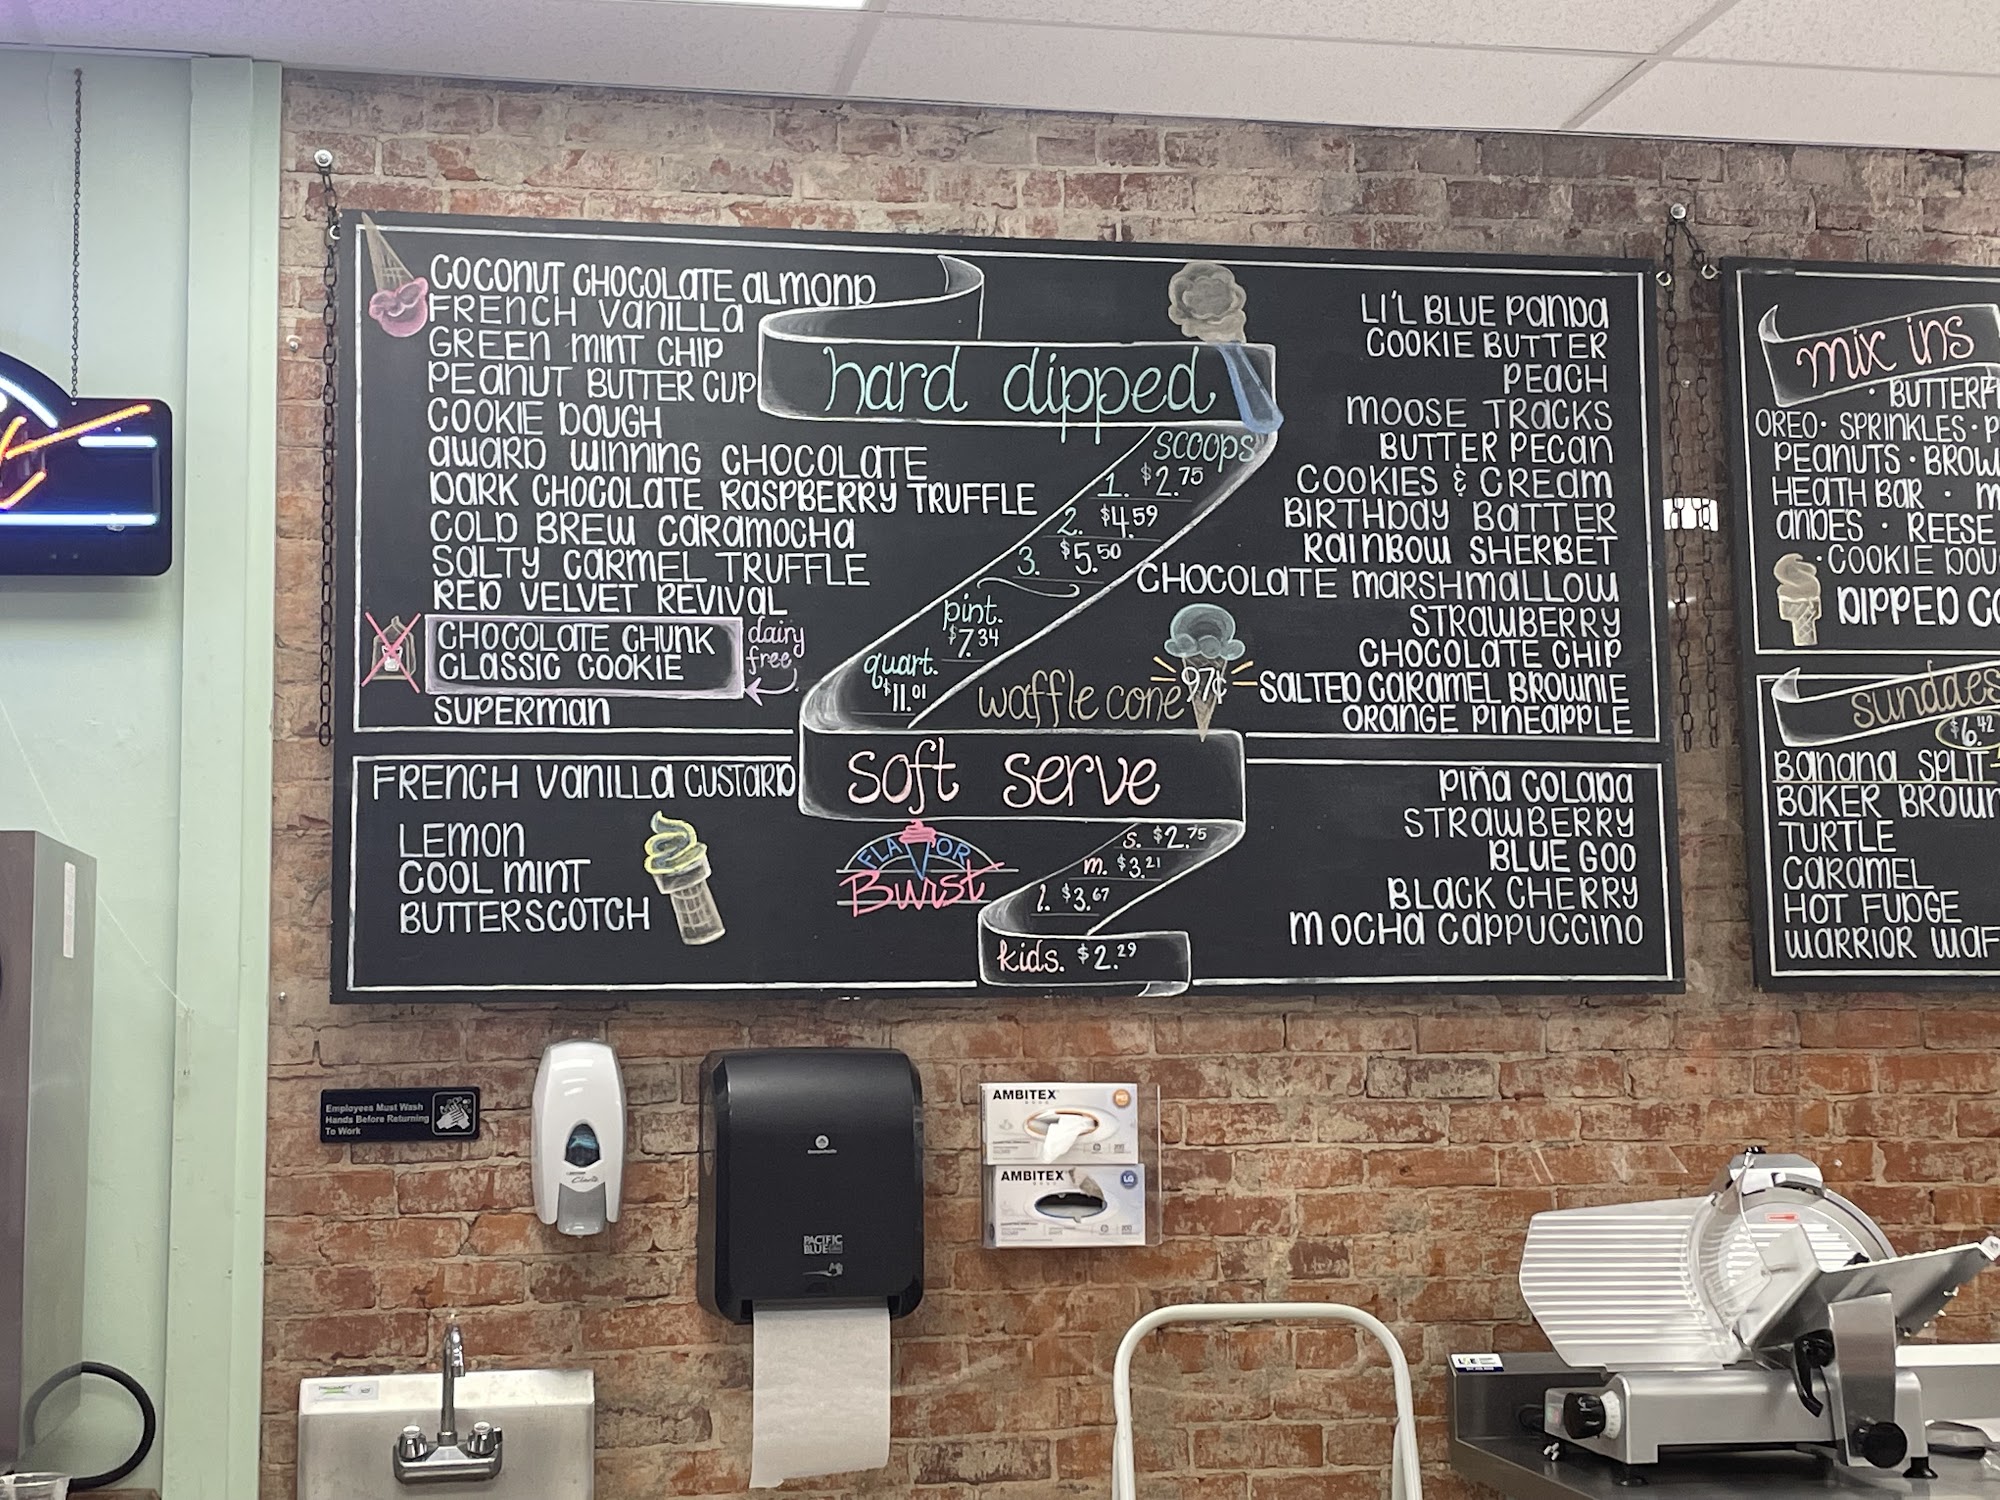 COCONUT CHOCOLATE ALMOND
FRENCH VANILLA
GREEN MINT CHIP
PEANUT BUTTER CUP
COOKIE DOUGH
AWARD WINNING CHOCOLATE
DARK CHOCOLATE RASPBERRY TRUFFLE
COLD BREW CARAMOCHA
SALTY CARMEL TRUFFLE
RED VELVET REVIVAL
CHOCOLATE CHUNK
CLASSIC COOKIE
dairy
free
SUPERMAN
hard dipped
scoops
1. $2.75
2. $4.59
3. $5.50
pint.
$7.34
quart.
$11.01
waffle cone 97¢
LI'L BLUE PANDA
COOKIE BUTTER
PEACH
MOOSE TRACKS
BUTTER PECAN
COOKIES & CREAM
BIRTHDAY BATTER
RAINBOW SHERBET
CHOCOLATE MARSHMALLOW
STRAWBERRY
CHOCOLATE CHIP
SALTED CARAMEL BROWNIE
ORANGE PINEAPPLE
FRENCH VANILLA CUSTARD
LEMON
COOL MINT
BUTTERSCOTCH
soft serve
FLAVOR
Burst
s. $2.75
m. $3.21
l. $3.67
kids. $2.29
PIÑA COLADA
STRAWBERRY
BLUE GOO
BLACK CHERRY
MOCHA CAPPUCCINO
mix ins
· BUTTERF
OREO · SPRINKLES · P
PEANUTS · BROW
HEATH BAR · M
ANDES · REESE
· COOKIE DOU
DIPPED CO
sundaes
$6.42
BANANA SPLIT
BAKER BROWN
TURTLE
CARAMEL
HOT FUDGE
WARRIOR WAF
Employees Must Wash
Hands Before Returning
To Work
PACIFIC
BLUE
AMBITEX
AMBITEX
LG